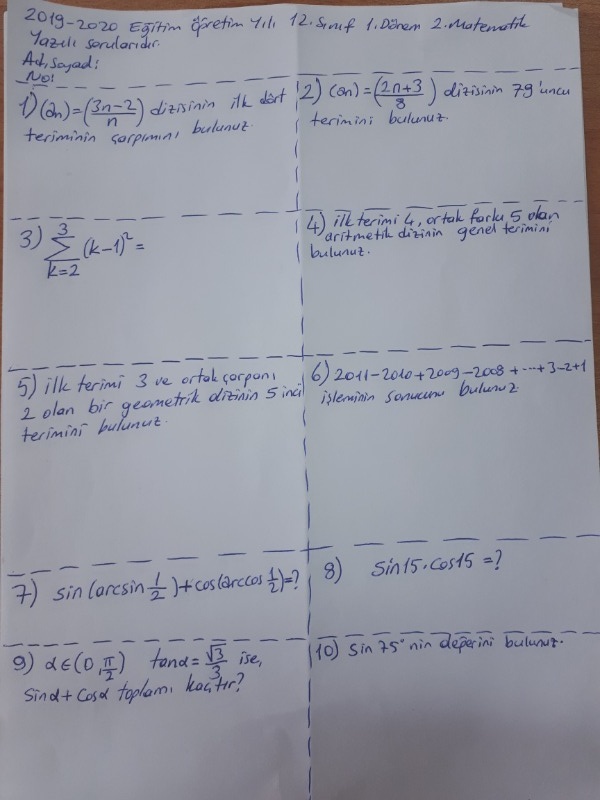 2019-2020 Eğitim Öğretim Yılı 12. Sınıf 1. Dönem 2. Matematik
Yazılı sorularıdır.
Adı, Soyad:
No:
1) (an)=(3n-2/n) dizisinin ilk dört
teriminin çarpımını bulunuz.
2) (an)=(2n+3/8) dizisinin 79'uncu
terimini bulunuz.
3) ∑_{k=2}^{3} (k-1)² =
4) ilk terimi 4, ortak farkı 5 olan
aritmetik dizinin genel terimini
bulunuz.
5) ilk terimi 3 ve ortak çarpanı
2 olan bir geometrik dizinin 5 inci
terimini bulunuz.
6) 2011-2010+2009-2008+...+3-2+1
işleminin sonucunu bulunuz
7) sin(arcsin 1/2)+cos(arccos 1/2)=?
8) Sin15.cos15=?
9) α∈(0,π/2) tanα=√3/3 ise,
sinα+cosα toplamı kaçtır?
10) Sin 75° nin değerini bulunuz.